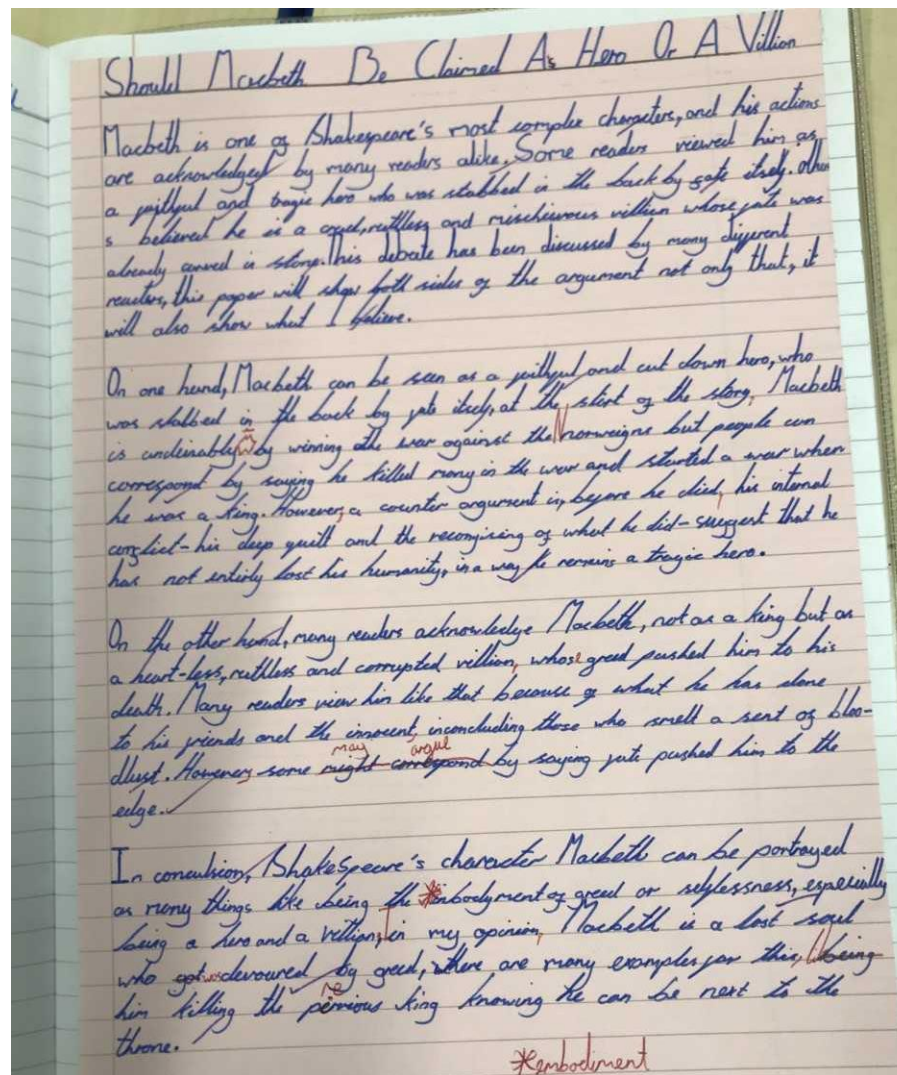 Should Macbeth Be Claimed As Hero Or A Villion
Macbeth is one of Shakespeare's most complex characters, and his actions
are acknowledged by many readers alike. Some readers viewed him as
a faithful and tragic hero who was stabbed in the back by fate itself. Other
s believed he is a cruel, ruthless and mischievous villion whose fate was
already carved in stone. This debate has been discussed by many different
readers, this paper will show both sides of the argument not only that, it
will also show what I believe.
On one hand, Macbeth can be seen as a faithful and cut down hero, who
was stabbed in the back by fate itself, at the start of the story, Macbeth
is undeinably by winning the war against the Norweigns but people can
correspond by saying he killed many in the war and started a war when
he was a king. However, a counter argument is, before he died, his internal
conflict - his deep guilt and the recongising of what he did - suggest that he
has not entirly lost his humanity, in a way he remains a tragic hero.
On the other hand, many readers acknowledge Macbeth, not as a king but as
a heart-less, ruthless and corrupted villion, whose greed pushed him to his
death. Many readers view him like that because of what he has done
to his friends and the innocent, inconcluding those who smell a sent of bloo-
may argue
dlust. However, some might correspond by saying fate pushed him to the
edge.
In conculsion, Shakespeare's character Macbeth can be portrayed
as many things like being the *inbodyment of greed or selflessness, especially
being a hero and a villian, In my opinion, Macbeth is a lost soul
who got devoured by greed, there are many examples for this, being
him killing the king knowing he can be next to the
throne.
*embodiment